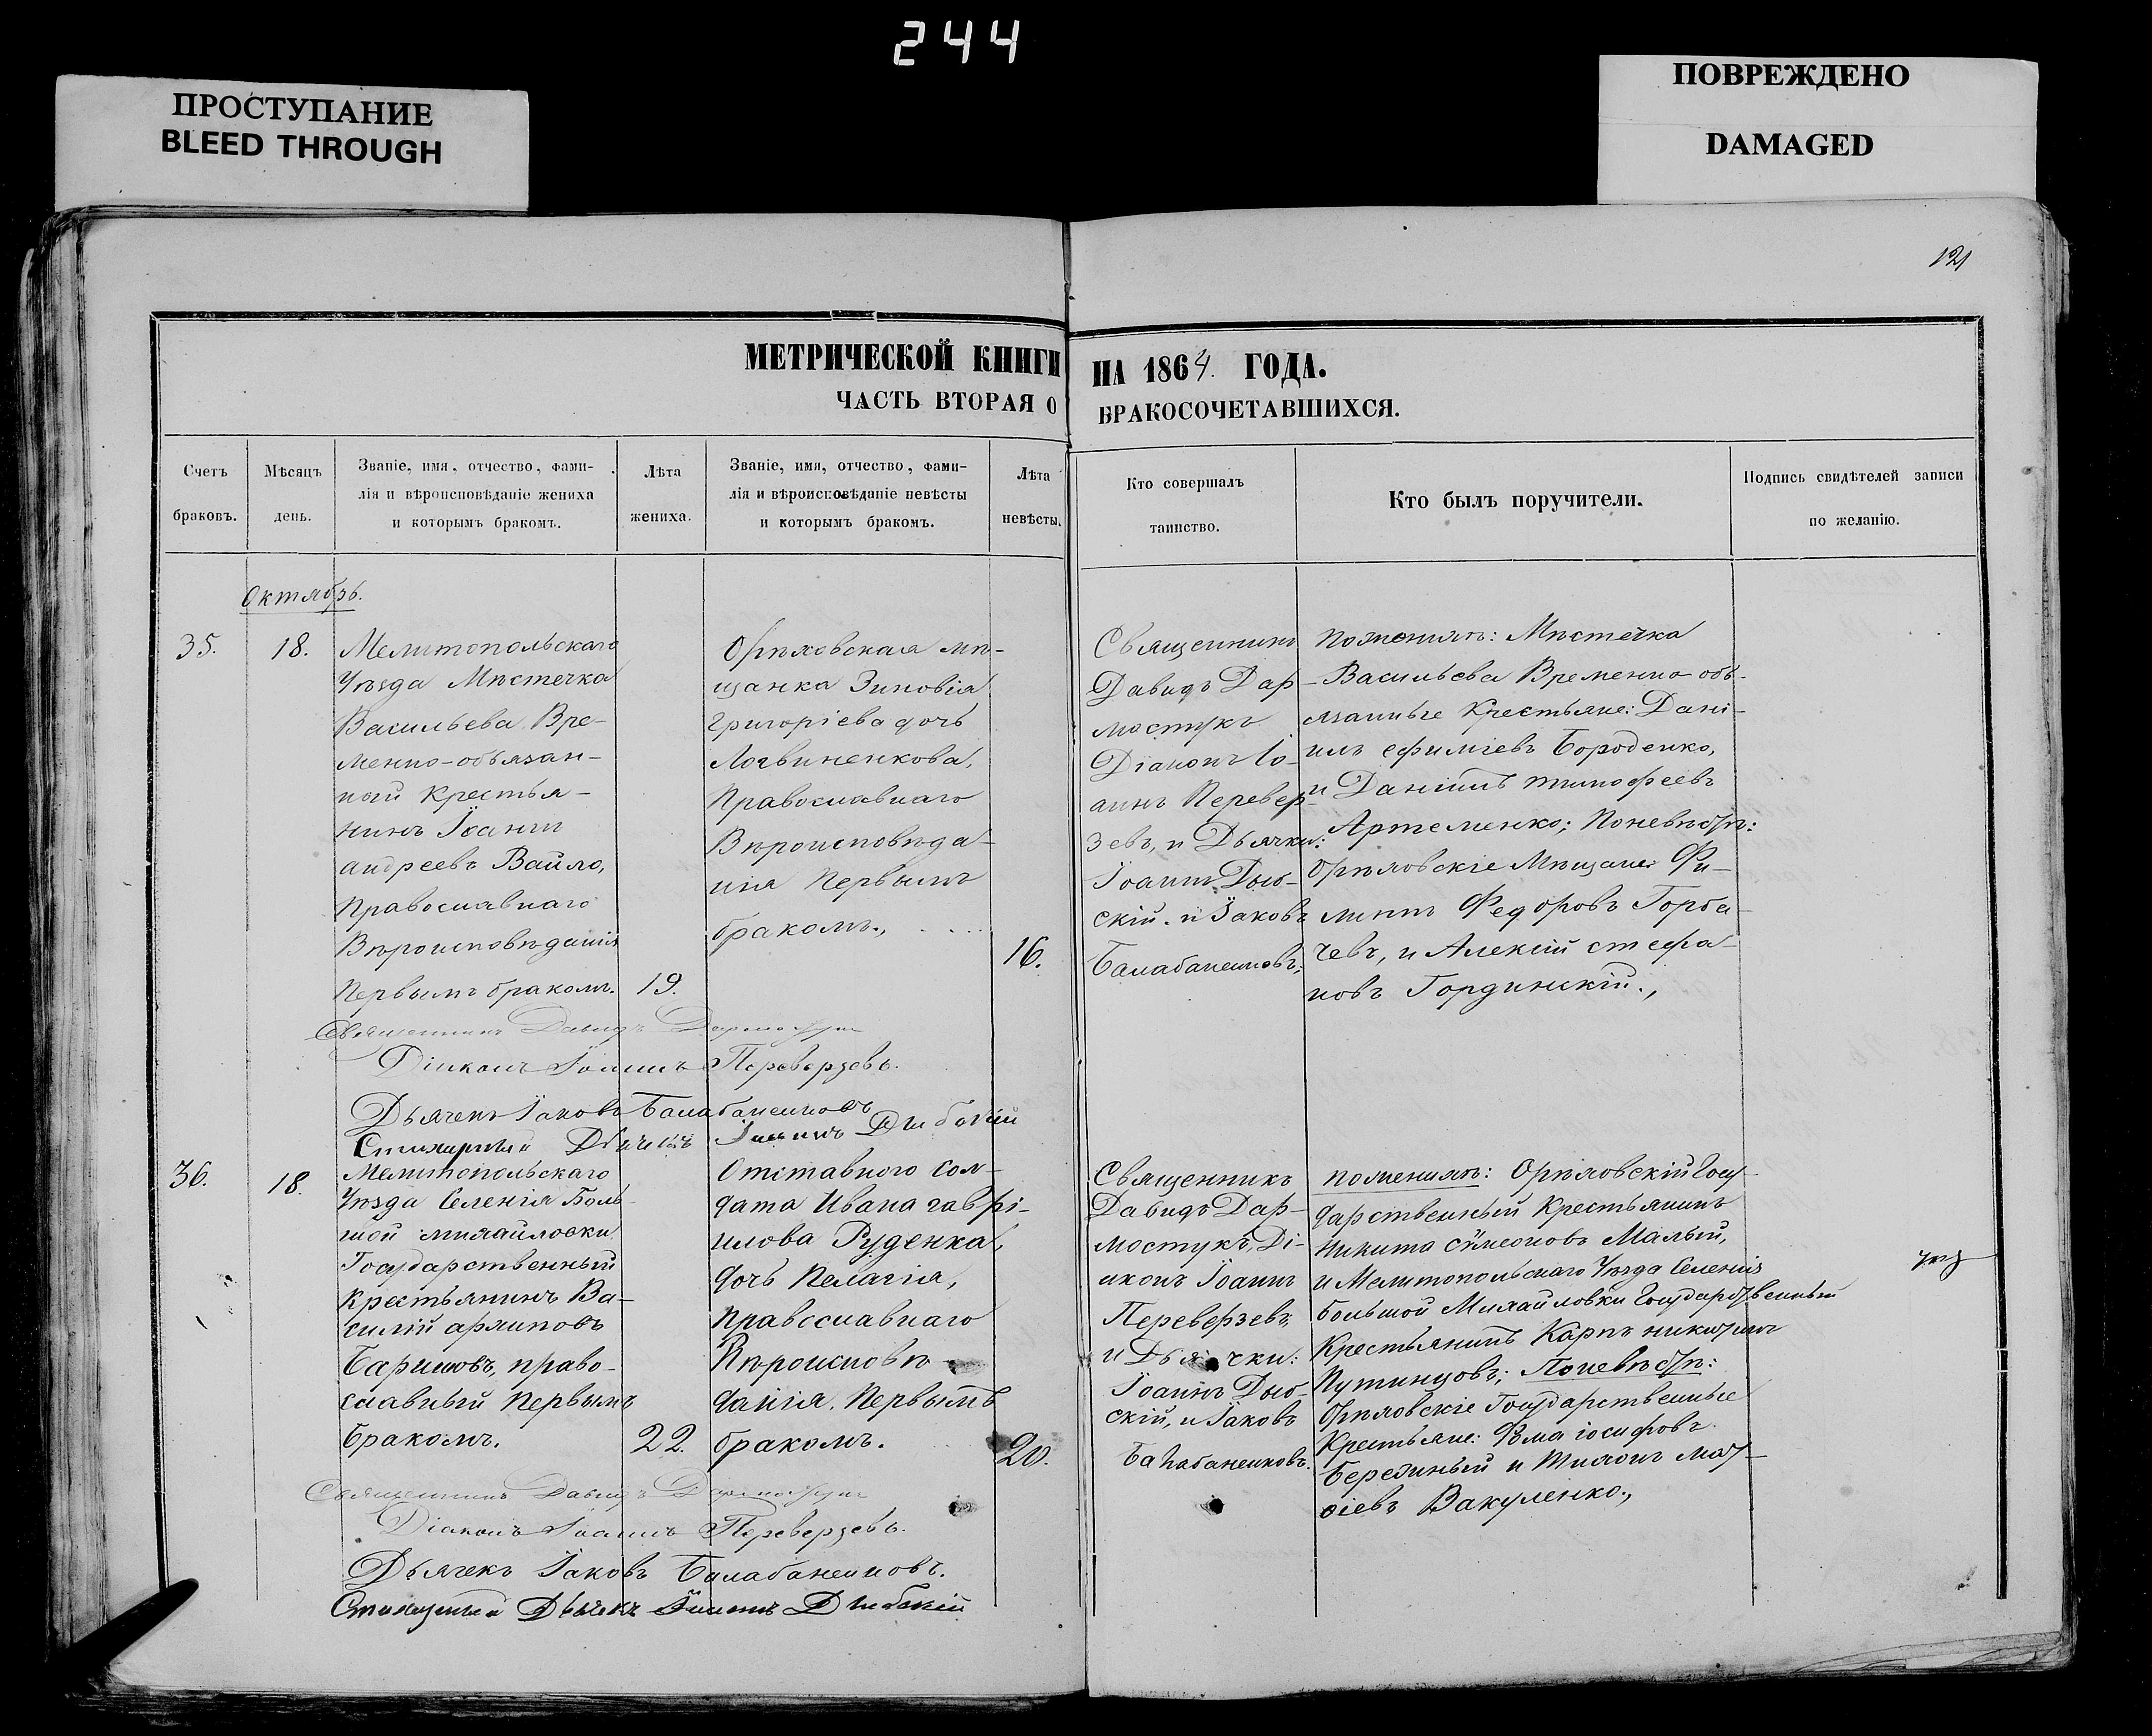 244
ПРОСТУПАНИЕ
BLEED THROUGH
ПОВРЕЖДЕНО
DAMAGED
121
МЕТРИЧЕСКОЙ КНИГИ НА 1864 ГОДА.
ЧАСТЬ ВТОРАЯ О БРАКОСОЧЕТАВШИХСЯ.
Счетъ
браковъ.
Мѣсяцъ
день.
Званіе, имя, отчество, фами-
лія и вѣроисповѣданіе жениха
и которымъ бракомъ.
Лѣта
жениха.
Званіе, имя, отчество, фами-
лія и вѣроисповѣданіе невѣсты
и которымъ бракомъ.
Лѣта
невѣсты.
Кто совершалъ
таинство.
Кто былъ поручители.
Подпись свидѣтелей записи
по желанію.
Октябрь.
35.
18.
Мелитопольскаго
Уѣзда Мѣстечка
Васильева Вре-
менно-обязан-
ный крестья-
нинъ Іоаннъ
андреевъ Вайло,
Православнаго
Вѣроисповѣданія
Первымъ бракомъ.
19.
Орѣховская мѣ-
щанка Зиновія
Григоріева дочь
Логвиненкова,
Православнаго
Вѣроисповѣда-
нія Первымъ
бракомъ.,
16.
Священникъ
Давидъ Дар-
мостукъ
Діаконъ Іо-
аннъ Перевер-
зевъ, и Дьячки:
Іоаннъ Дыб-
скій. и Іаковъ
Балабаненковъ;
Поженихѣ: Мѣстечка
Васильева Временно-обя-
занные Крестьяне: Дані-
илъ ефиміевъ Бороденко,
и Даніилъ тимофеевъ
Артеменко; Поневѣстѣ:
Орѣховскіе Мѣщане: Фи-
липпъ Федоровъ Горба-
чевъ, и Алексій стефа-
новъ Гординскій.,
Священникъ Давидъ Дармостукъ
Діаконъ Іоаннъ Переверзевъ.
Дьячекъ Іаковъ Балабаненковъ
Стихарный Дьячекъ Іоаннъ Дыбскій
36.
18.
Мелитопольскаго
Уѣзда Селенія Боль-
шой михайловки
Государственный
Крестьянинъ Ва-
силій архиповъ
Баришовъ, право-
славный Первымъ
Бракомъ.
22.
Отставного сол-
дата Ивана гаврі-
илова Руденка,
дочь Пелагія,
Православнаго
Вѣроисповѣ-
данія. Первымъ
бракомъ.
20.
Священникъ
Давидъ Дар-
мостукъ, Ді-
аконъ Іоаннъ
Переверзевъ,
и Дьячки:
Іоаннъ Дыб-
скій, и Іаковъ
Балабаненковъ.
поженихѣ: Орѣховскій Госу-
дарственный Крестьянинъ
Никита сѵмеоновъ Малый,
и Мелитопольскаго Уѣзда Селенія
большой Михайловки Государственный
Крестьянинъ Карпъ никитинъ
Путинцовъ; Поневѣстѣ:
Орѣховскіе Государственные
Крестьяне: Фома іосифовъ
Березиный и тихонъ мат-
ѳіевъ Вакуленко.,
Священникъ Давидъ Дармостукъ
Діаконъ Іоаннъ Переверзевъ.
Дьячекъ Іаковъ Балабаненковъ.
Стихарный Дьячекъ Іоаннъ Дыбскій